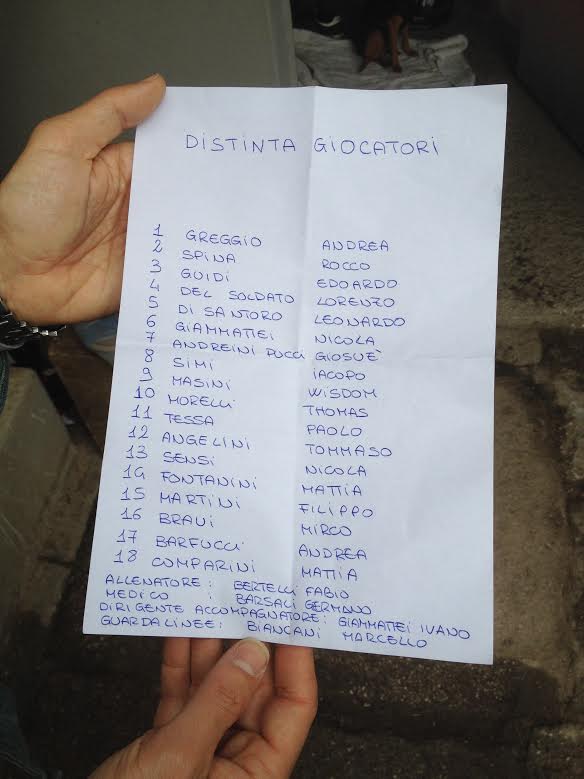 DISTINTA GIOCATORI
1 GREGGIO ANDREA
2 SPINA ROCCO
3 GUIDI EDOARDO
4 DEL SOLDATO LORENZO
5 DI SANTORO LEONARDO
6 GIAMMATTEI NICOLA
7 ANDREINI PUCCI GIOSUÈ
8 SIMI IACOPO
9 MASINI WISDOM
10 MORELLI THOMAS
11 TESSA PAOLO
12 ANGELINI TOMMASO
13 SENSI NICOLA
14 FONTANINI MATTIA
15 MARTINI FILIPPO
16 BRAVI MIRCO
17 BARFUCCI ANDREA
18 COMPARINI MATTIA
ALLENATORE: BERTELLI FABIO
MEDICO : BARSALI GERMANO
DIRIGENTE ACCOMPAGNATORE: GIAMMATTEI IVANO
GUARDALINEE: BIANCANI MARCELLO